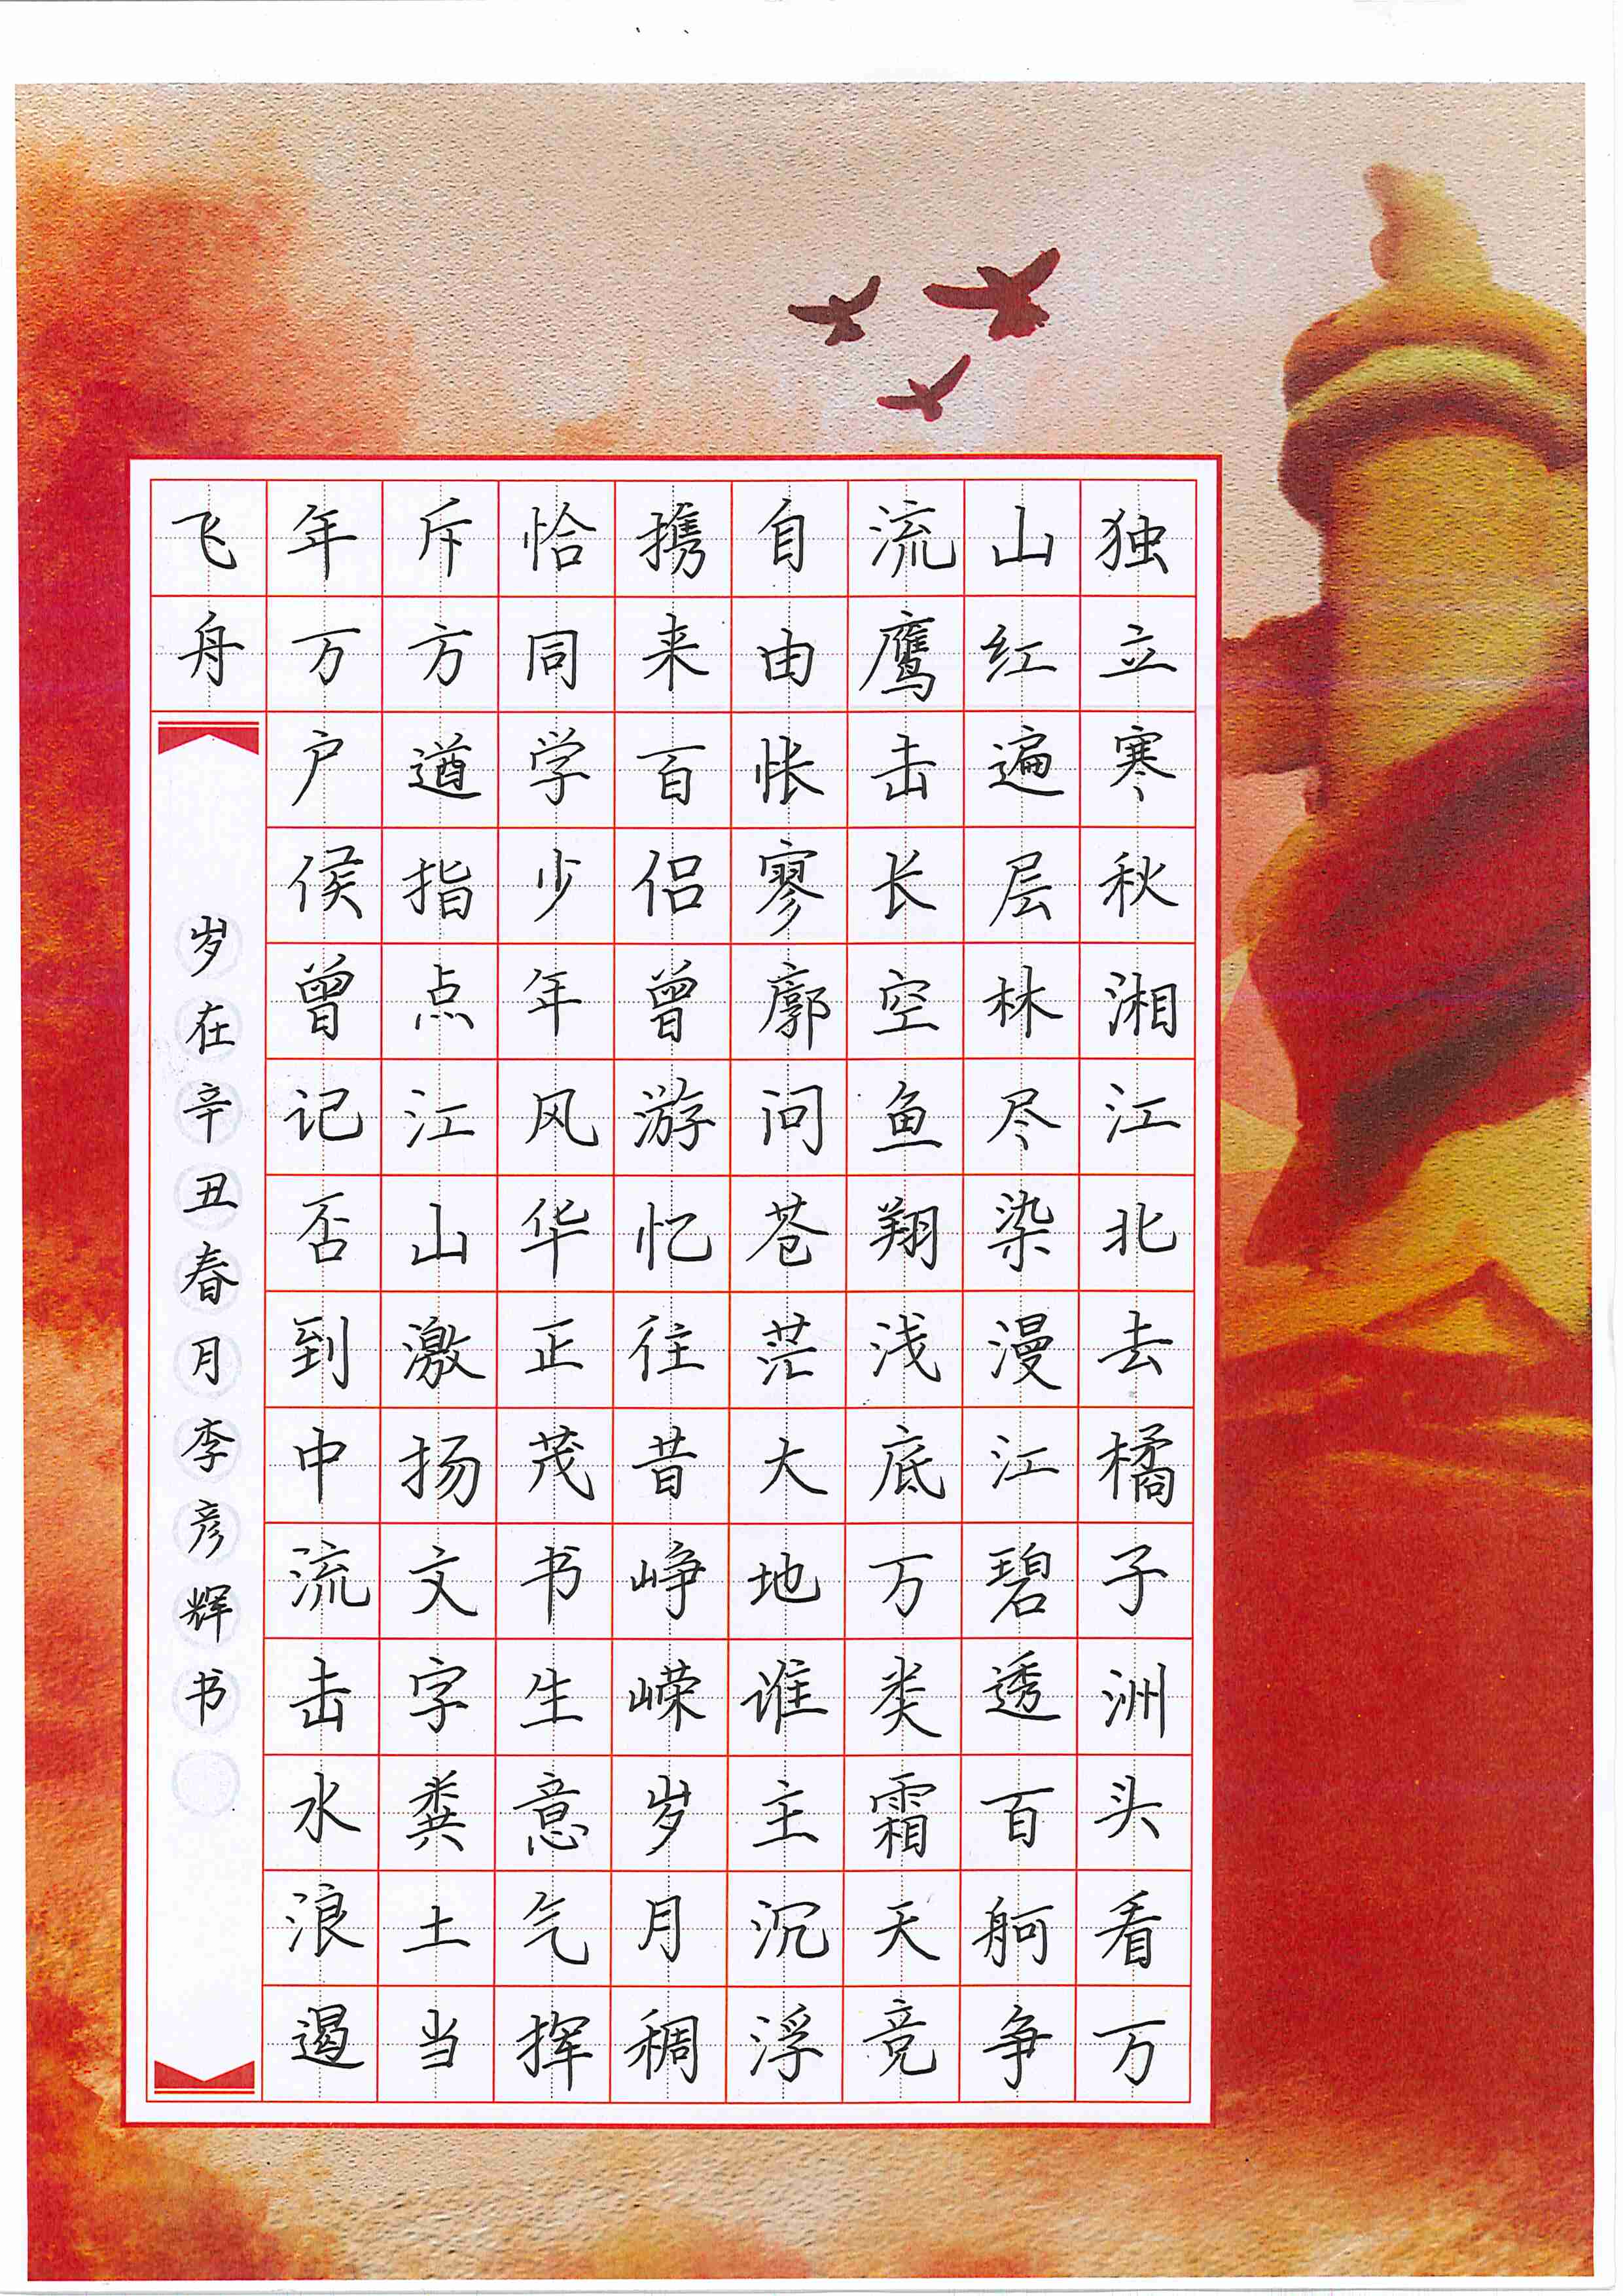 独立寒秋湘江北去橘子洲头看万
山红遍层林尽染漫江碧透百舸争
流鹰击长空鱼翔浅底万类霜天竞
自由怅寥廓问苍茫大地谁主沉浮
携来百侣曾游忆往昔峥嵘岁月稠
恰同学少年风华正茂书生意气挥
斥方遒指点江山激扬文字粪土当
年万户侯曾记否到中流击水浪遏
飞舟
岁在辛丑春月李彦辉书